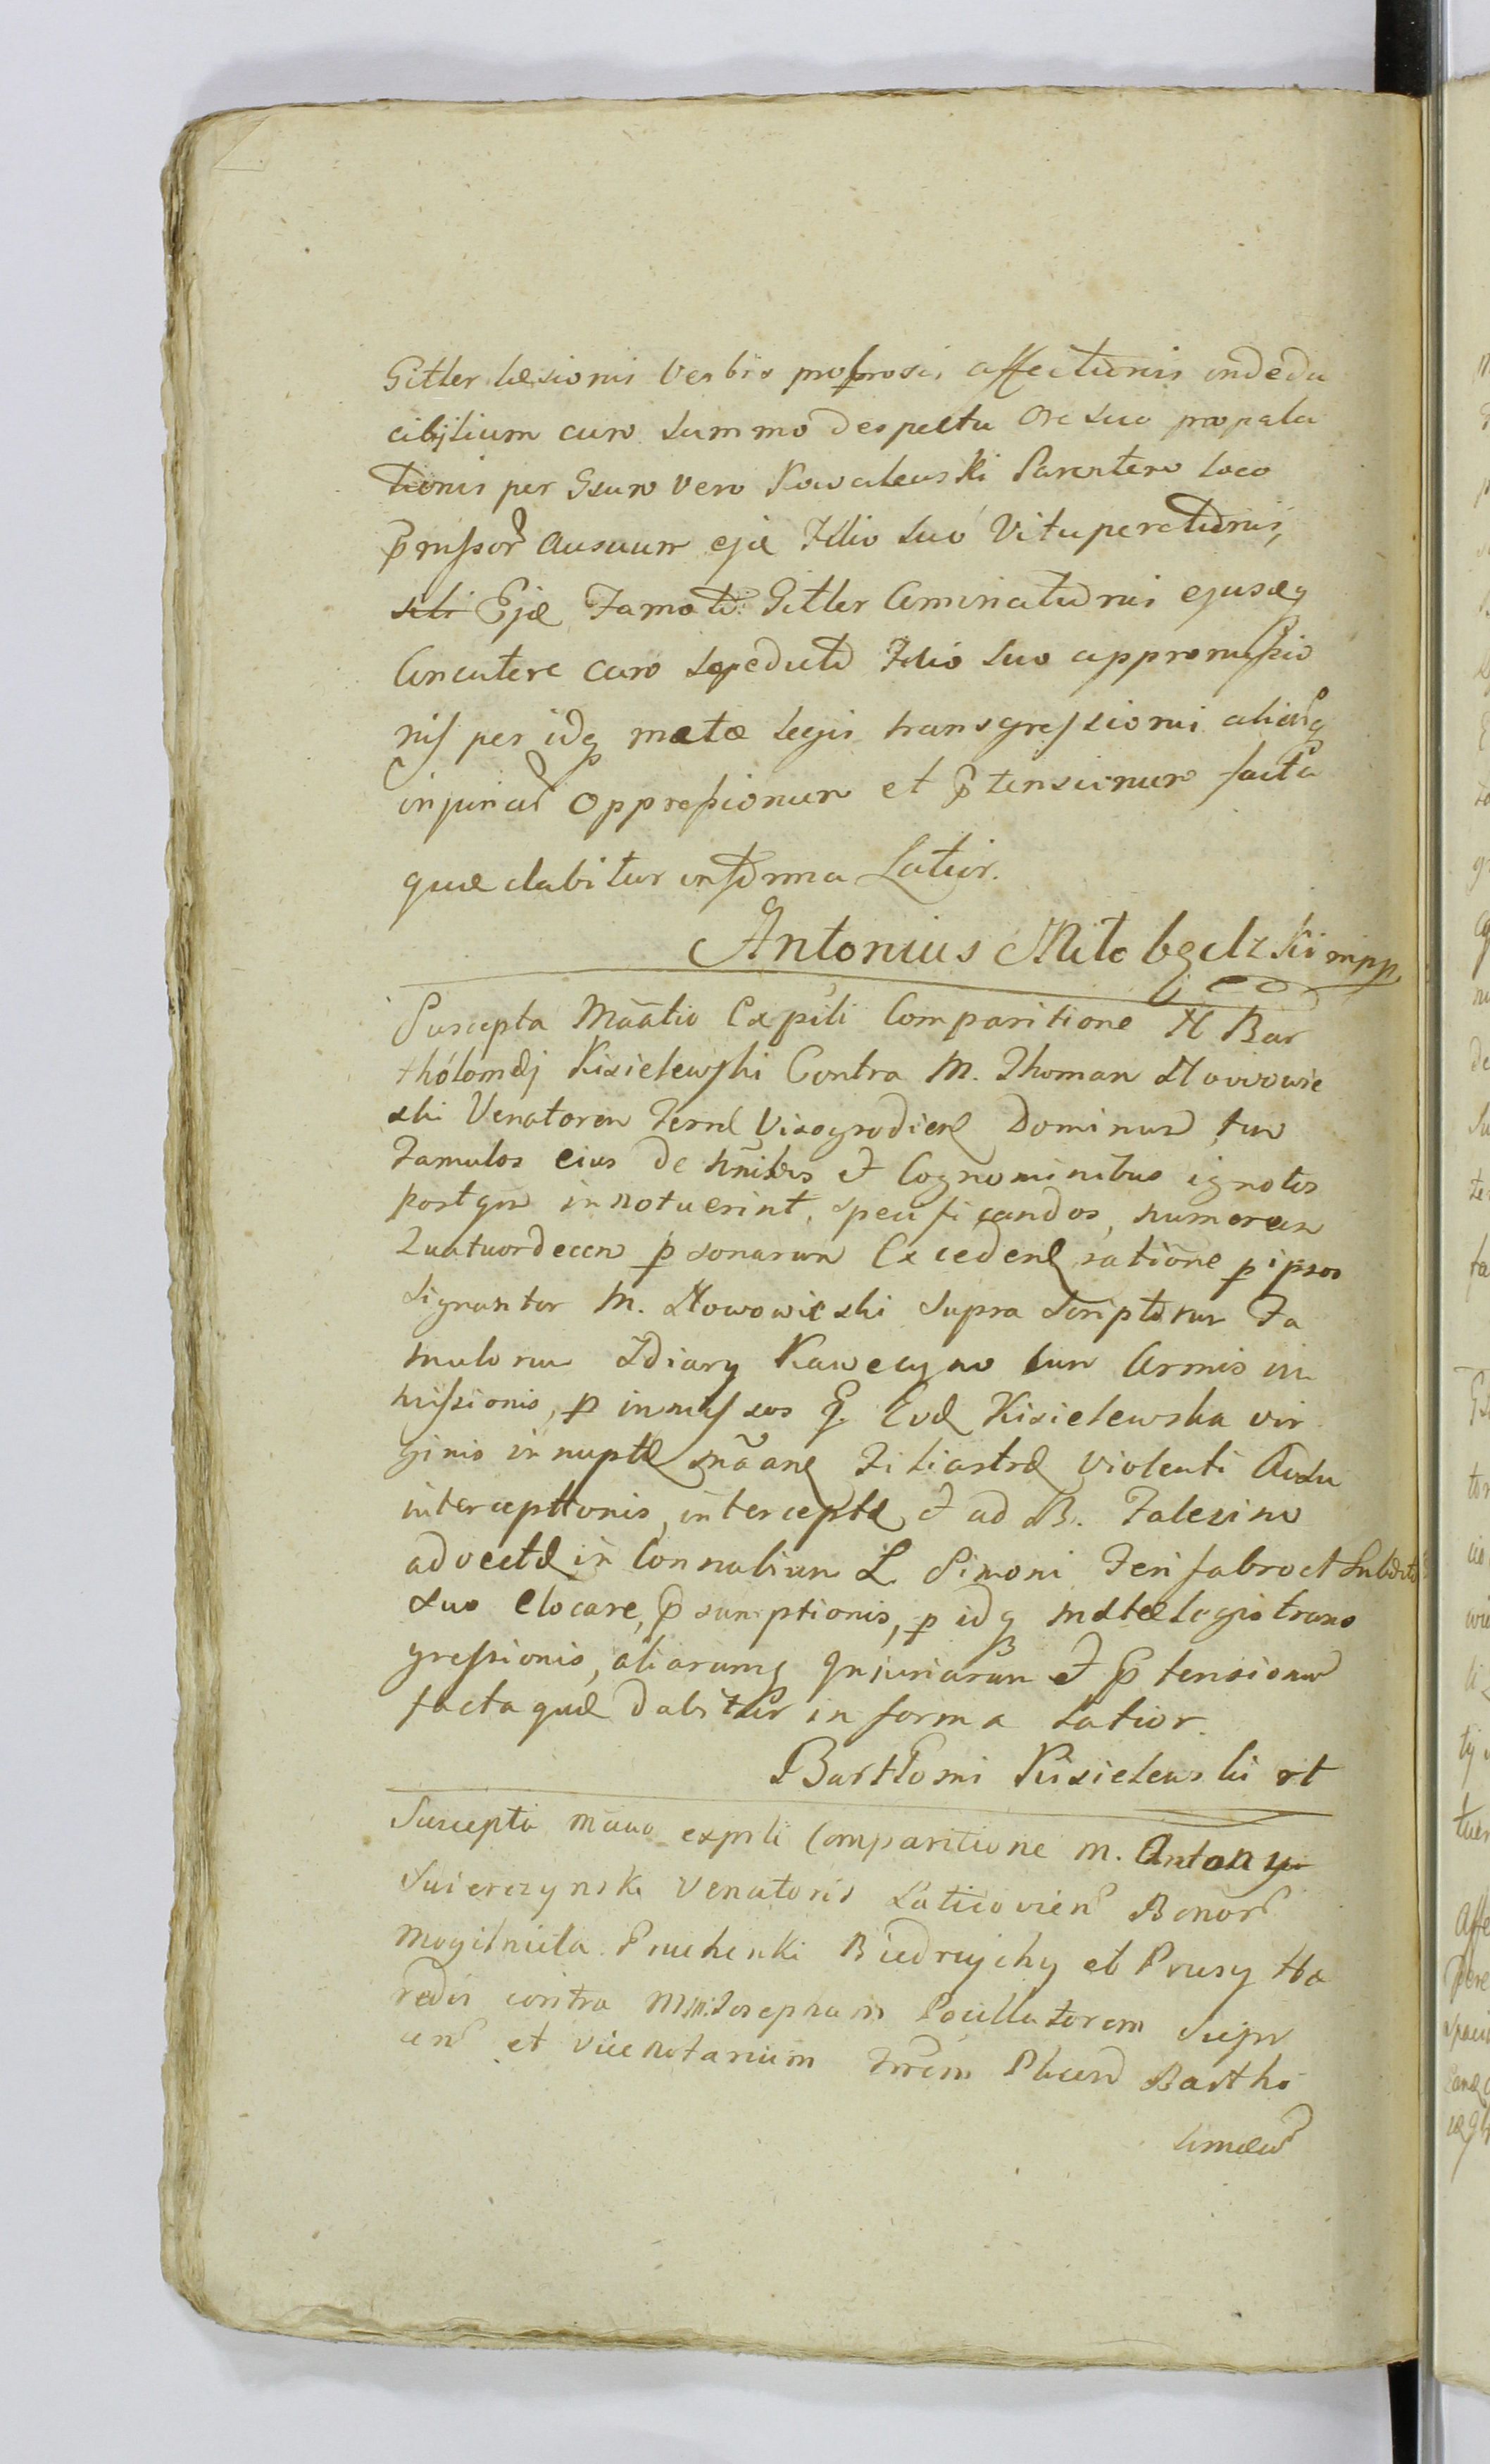 Gitler læsionis verbis probrosis affectionis indedu
cibilium cum summo despectu ore suo propala
tionis per Gsum vero Kowalewski Parentem loco
p̄missor Ausuum ejæ Filio suo Vituperationis,
sibi Ejæ Famati Gitler Cominationis ejusdęq
Concutere cum sæpedicto Filio suo appromissio
nis per idq metæ legis transgressionis aliarūq
injuriar Oppressionum et p̄tensionum facta
quæ dabitur in forma Latior.
Antonius Miłobędzki mpp
Suscepta Māatio Expłi Comparitione N Bar
thólomæj Kisielewski Contra M. Thomam Nowowie
ski Venatorem Terræ Visogrodien Dominum tum
Famulos eius de nn̄ibus et Cognominibus ignotos
postqm innotuerint, specificandos, numerum
Quatuordecem p̱sonarum Exceden ratione p̱ ipsos
signanter M. Nowowieski supra scriptorum Fa
mulorum Zdiary Kawęczyno cum Armis im
missionis, p̱ inmissos G. Evæ Kisielewska vir
ginis innuptæ Filiastræ violenti Ausu
interceptionis, interceptæ et ad B. Falęcino
advectæ in Connubium L. Simoni Feri fabro et Subdito
suo elocare, p̄sumptionis, p̱ idq metæ legis trans
gressionis, aliarumq Injuriarum et p̄tensionum
facta quæ dabitur in forma Latior.
Barthomi Kisielewski rt
Suscepta māao expłi Comparitione M. Antony
Swierczynski Venatoris Laticovien Bonor
Mogilnicta Pruchenki Biedrzychy et Prusy Hæ
redis contra M. Josephum Pocillatorem
cen et vice Notarium Trrem Plocen Bartho
lomæum